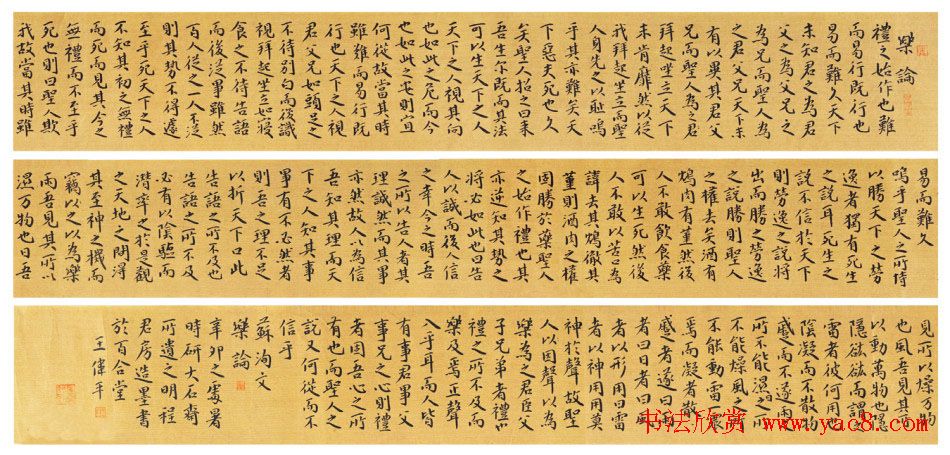 樂論
禮之始作也難
而易行既行也
易而難久天下
未知君之為君
父之為父兄之
為兄而聖人為
之君父兄天下未
有以異其君父
兄而聖人為之
未肯靡然以從
我拜起坐立而聖
人身先之以恥嗚
乎其亦難矣天
下惡夫死也久
矣聖人招之曰來
吾生尔既而其法
可以生天下之人
天下之人視其向
也如此之危而今
也如此之安則宜
何從故當其時
雖難而易行既
行也天下之人視
君父兄如頭足之
不待別白而後識
視拜起坐立如寢
食之不待告語
而後從事雖然
百人從之一人不從
則其勢不得遽
至乎死天下之人
不知其初之無禮
而死而見其今之
無禮而不至乎
死也則曰聖人欺
我故當其時雖
易而難久
嗚乎聖人之所恃
以勝天下之勞
逸者獨有死生
之說耳死生之
說不信於天下
則勞逸之說將
出而勝之勞逸
之說勝則聖人
之權去矣酒有
鴆肉有堇然後
人不敢飲食藥
可以生死然後
人不敢以苦口為
諱去其鴆徹其
堇則酒肉之權
固勝於藥聖人
之始作禮也其
亦逆知其勢之
將必如此也曰告
人以誠而後人信
之幸今之時吾
之所以告人者其
理誠然而其事
亦然故人以為信
吾知其理而天
下之人知其事
事有不必然者
則吾之理不足
以折天下口此
告語之所不及也
告語之所不及
必有以陰驅而
潛率之於是觀
之天地之間得
其至神之機而
竊之以為樂
雨吾見其所以
濕萬物也日吾
見所以燥万物
也風吾見其所
以動萬物也隱
隱谹谹而謂之
雷者彼何用也
陰凝而不散物
蹙而不遂雨之
所不能濕日之
所不能燥風之
所不能動雷一震
焉而凝者散
蹙者遂曰雨
者曰日者曰風
者以形用曰雷
者以神用用莫
神於聲故聖
人因聲以為
樂為之君臣父
子兄弟者禮也
禮之所不及而
樂及焉正聲
入乎耳而人皆
有事君事父
事兄之心則禮
者固吾心之所
有也而聖人之
說又何從而不
信乎
蘇洵文
樂論
辛卯之處暑
時研大石齋
所遺之明程
君房造墨書
於百合堂
王偉平
书法欣赏 www.yac8.com